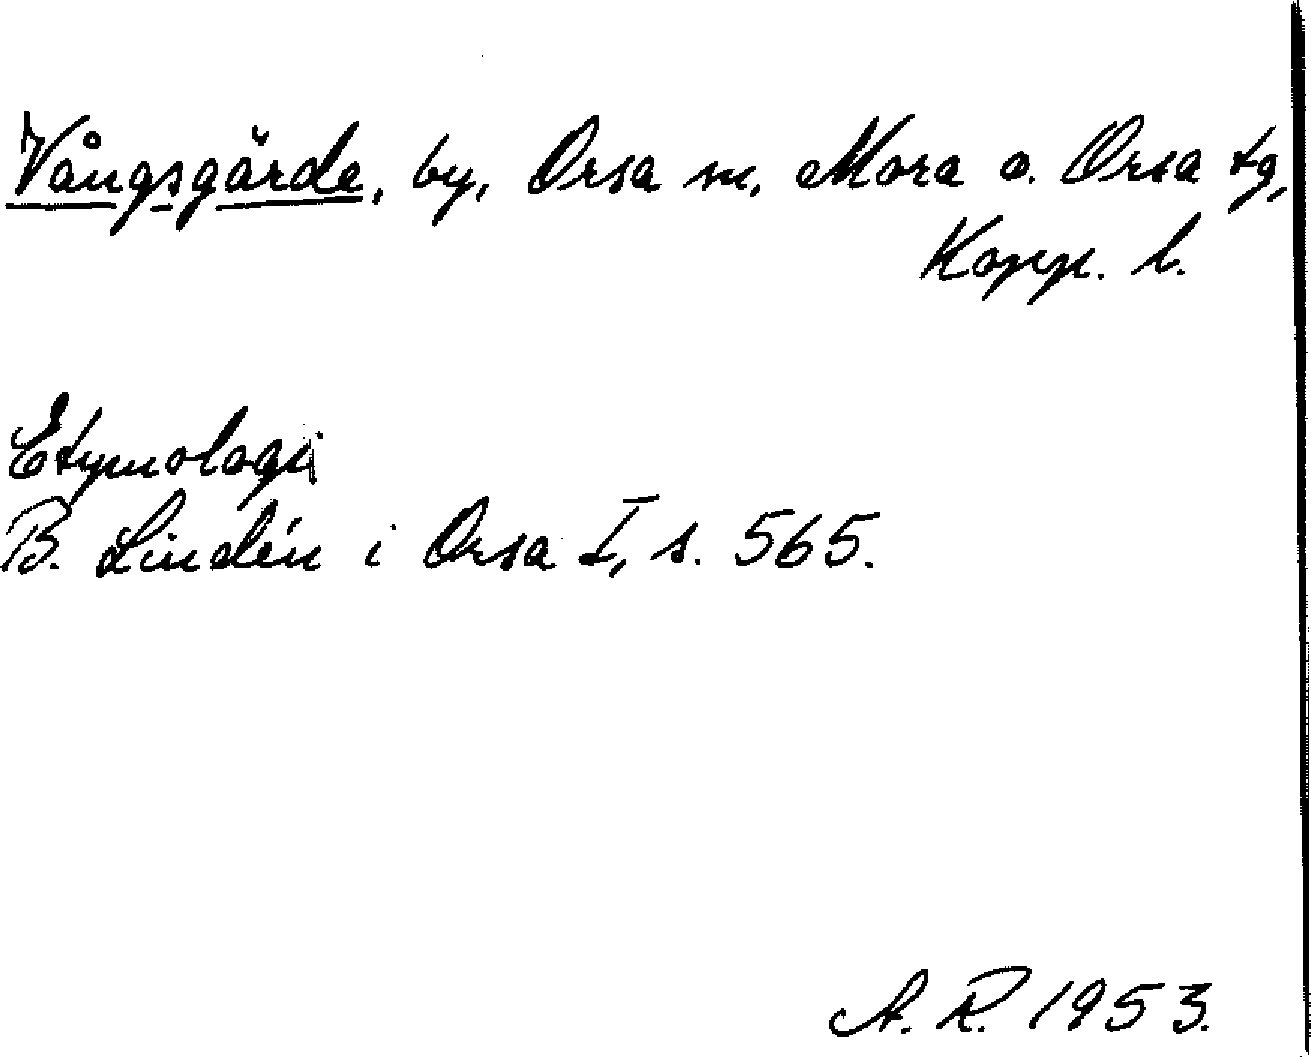 Vångsgärde, by, Orsa sn, Mora o. Orsa tg,
Kopp. l.
Etymologi
B. Lindén i Orsa I, s. 565.
A. R. 1953.